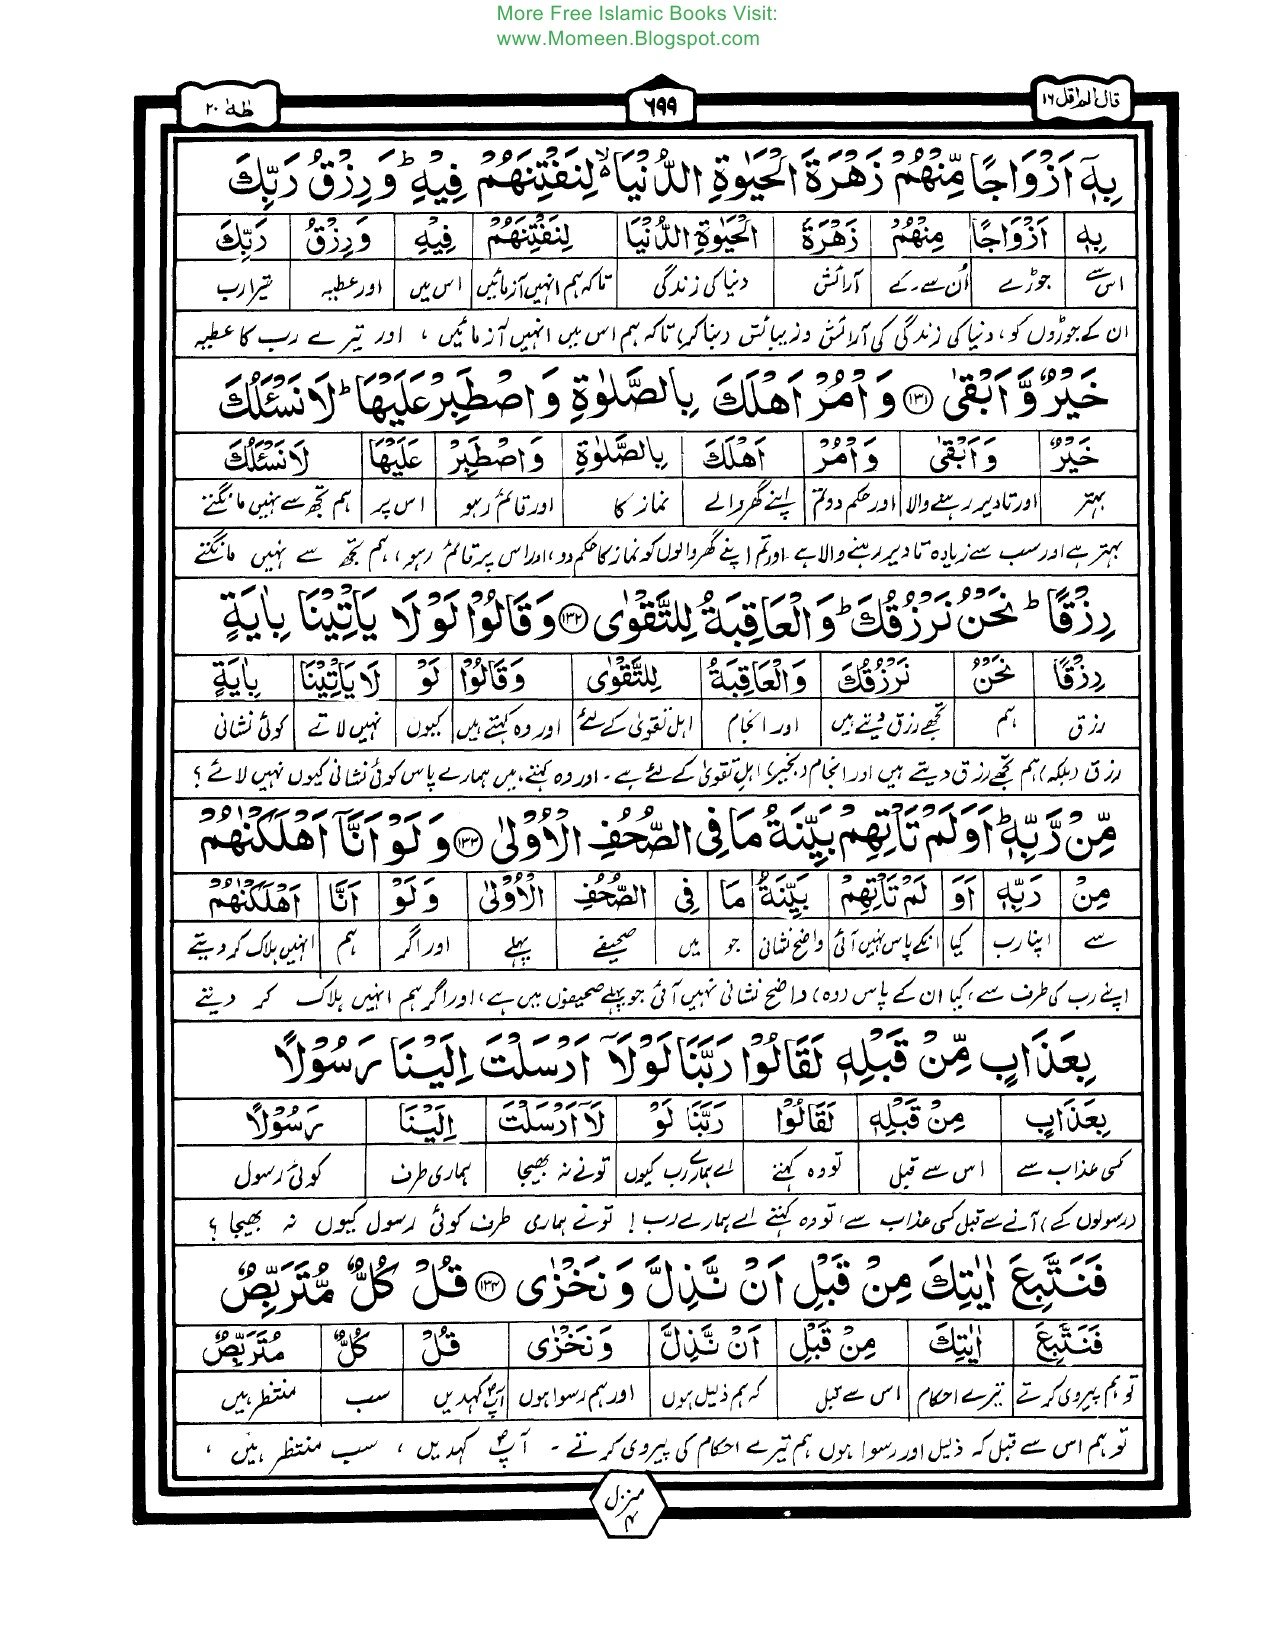 More Free Islamic Books Visit:
www.Momeen.Blogspot.com
قال الم اقل ۱۶
۶۹۹
طٰهٰ ۲۰
بِهٖۤ اَزْوَاجًا مِّنْهُمْ زَهْرَةَ الْحَيٰوةِ الدُّنْيَا ۙ لِنَفْتِنَهُمْ فِيْهِ ؕ وَ رِزْقُ رَبِّكَ
بِهٖ اَزْوَاجًا مِنْهُمْ زَهْرَةَ الْحَيٰوةِ الدُّنْيَا لِنَفْتِنَهُمْ فِيْهِ وَ رِزْقُ رَبِّكَ
اس سے جوڑے اُن سے۔ کے آرائش دنیا کی زندگی تاکہ ہم انہیں آزمائیں اس میں اور عطیہ تیرا رب
ان کے جوڑوں کو، دنیا کی زندگی کی آرائش و زیبائش دبنا کر) تاکہ ہم اس میں انہیں آزمائیں ، اور تیرے رب کا عطیہ
خَيْرٌ وَّ اَبْقٰى ۱۳۱ وَ اْمُرْ اَهْلَكَ بِالصَّلٰوةِ وَ اصْطَبِرْ عَلَيْهَا ؕ لَا نَسْـَٔلُكَ
خَيْرٌ وَ اَبْقٰى وَ اْمُرْ اَهْلَكَ بِالصَّلٰوةِ وَ اصْطَبِرْ عَلَيْهَا لَا نَسْـَٔلُكَ
بہتر اور تا دیر رہنے والا اور حکم دو تم اپنے گھر والے نماز کا اور قائم رہو اس پر ہم تجھ سے نہیں مانگتے
بہتر ہے اور سب سے زیادہ تا دیر رہنے والا ہے۔ اور تم اپنے گھر والوں کو نماز کا حکم دو، اور اس پر قائم رہو، ہم تجھ سے نہیں مانگتے
رِزْقًا ؕ نَحْنُ نَرْزُقُكَ ؕ وَ الْعَاقِبَةُ لِلتَّقْوٰى ۱۳۲ وَ قَالُوْا لَوْ لَا يَاْتِيْنَا بِاٰيَةٍ
رِزْقًا نَحْنُ نَرْزُقُكَ وَ الْعَاقِبَةُ لِلتَّقْوٰى وَ قَالُوْا لَوْ لَا يَاْتِيْنَا بِاٰيَةٍ
رزق ہم تجھے رزق دیتے ہیں اور انجام اہل تقویٰ کے لئے اور وہ کہتے ہیں کیوں نہیں لاتے کوئی نشانی
رزق (بلکہ) ہم تجھے رزق دیتے ہیں اور انجام (بخیر) اہلِ تقویٰ کے لئے ہے۔ اور وہ کہتے ہیں ہمارے پاس کوئی نشانی کیوں نہیں لائے؟
مِّنْ رَّبِّهٖ ؕ اَوَ لَمْ تَاْتِهِمْ بَيِّنَةُ مَا فِى الصُّحُفِ الْاُوْلٰى ۱۳۳ وَ لَوْ اَنَّاۤ اَهْلَكْنٰهُمْ
مِنْ رَبِّهٖ اَوَ لَمْ تَاْتِهِمْ بَيِّنَةُ مَا فِى الصُّحُفِ الْاُوْلٰى وَ لَوْ اَنَّا اَهْلَكْنٰهُمْ
سے اپنا رب کیا انکے پاس نہیں آئی واضح نشانی جو میں صحیفے پہلے اور اگر ہم انہیں ہلاک کر دیتے
اپنے رب کی طرف سے، کیا ان کے پاس (وہ) واضح نشانی نہیں آئی جو پہلے صحیفوں میں ہے، اور اگر ہم انہیں ہلاک کر دیتے
بِعَذَابٍ مِّنْ قَبْلِهٖ لَقَالُوْا رَبَّنَا لَوْ لَاۤ اَرْسَلْتَ اِلَيْنَا رَسُوْلًا
بِعَذَابٍ مِنْ قَبْلِهٖ لَقَالُوْا رَبَّنَا لَوْ لَاۤ اَرْسَلْتَ اِلَيْنَا رَسُوْلًا
کسی عذاب سے اس سے قبل تو وہ کہتے اے ہمارے رب کیوں تونے نہ بھیجا ہماری طرف کوئی رسول
(رسولوں کے) آنے سے قبل کسی عذاب سے، تو وہ کہتے اے ہمارے رب! تونے ہماری طرف کوئی رسول کیوں نہ بھیجا؟
فَنَتَّبِعَ اٰيٰتِكَ مِنْ قَبْلِ اَنْ نَّذِلَّ وَ نَخْزٰى ۱۳۴ قُلْ كُلٌّ مُّتَرَبِّصٌ
فَنَتَّبِعَ اٰيٰتِكَ مِنْ قَبْلِ اَنْ نَّذِلَّ وَ نَخْزٰى قُلْ كُلٌّ مُتَرَبِّصٌ
تو ہم پیروی کرتے تیرے احکام اس سے قبل کہ ہم ذلیل ہوں اور ہم رسوا ہوں آپؐ کہدیں سب منتظر ہیں
تو ہم اس سے قبل کہ ذلیل اور رسوا ہوں ہم تیرے احکام کی پیروی کرتے ۔ آپؐ کہدیں ، سب منتظر ہیں ،
منزل ۴